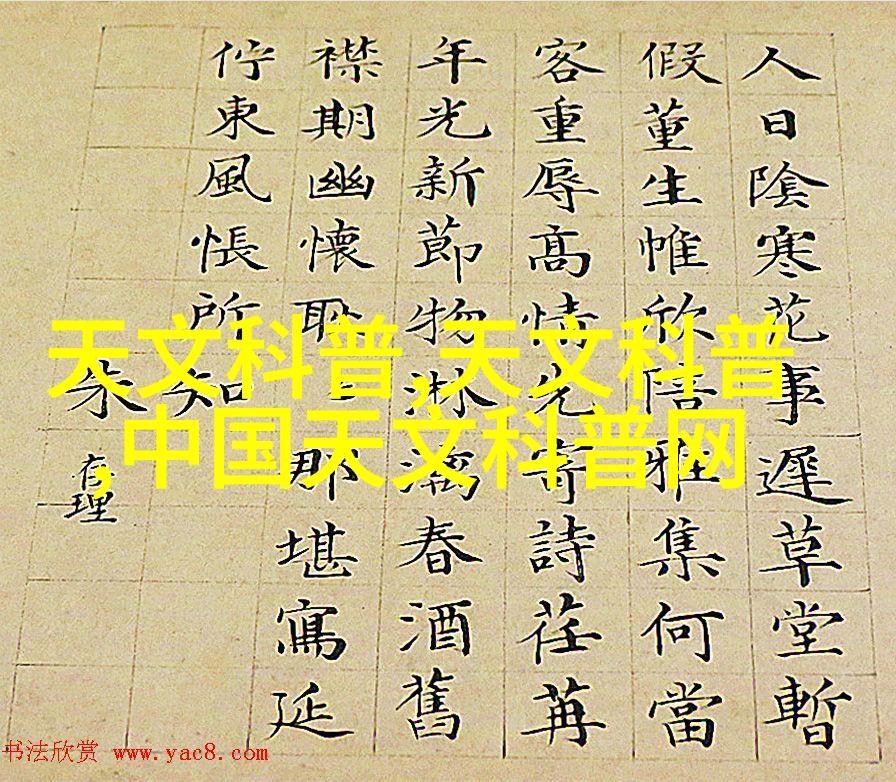 人日陰寒花事遲草堂暫
假董生帷欣陪雅集何當
客重辱高情先寄詩荏苒
年光新節物淋漓春酒舊
襟期幽懷那堪寫延
佇東風悵所知
朱存理
天文科普,天文科普
,中国天文科普网
书法欣赏 www.yac8.com